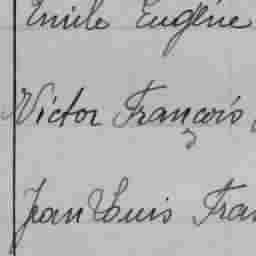 Emile Eugène
Victor François
Jean Louis Fran